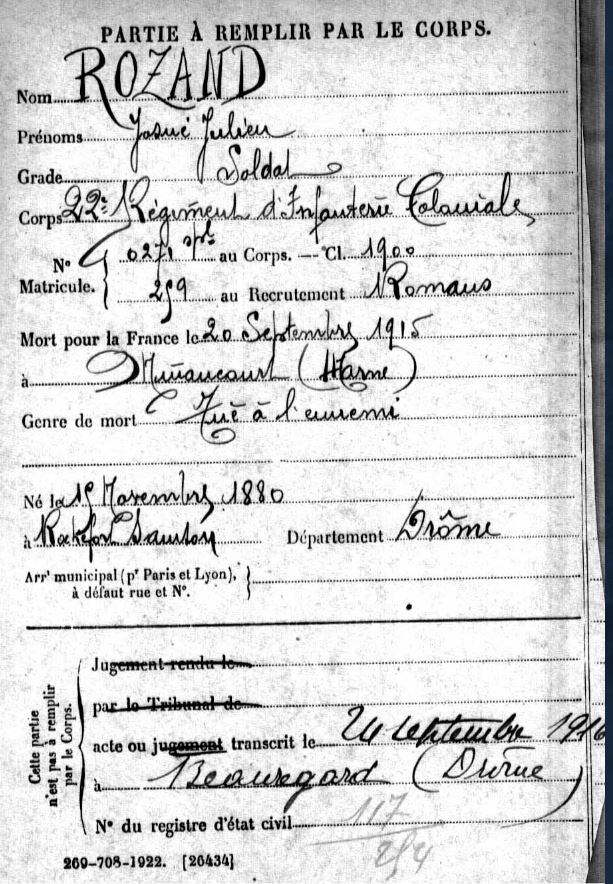 PARTIE À REMPLIR PAR LE CORPS.
Nom ROZAND
Prénoms Josué Julien
Grade Soldat
Corps 22e Régiment d'Infanterie Coloniale
N° Matricule. { 0271 au Corps. — Cl. 1900
259 au Recrutement Romans
Mort pour la France le 20 Septembre 1915
à Minaucourt (Marne)
Genre de mort Tué à l'ennemi
Né le 15 Novembre 1880
à Rochefort Samson Département Drôme
Arrt municipal (pr Paris et Lyon), }
à défaut rue et N°.
Cette partie n'est pas à remplir par le Corps.
Jugement rendu le
par le Tribunal de
acte ou jugement transcrit le 24 septembre 1916
à Beauregard (Drôme)
N° du registre d'état civil 117
269-708-1922. [26434]